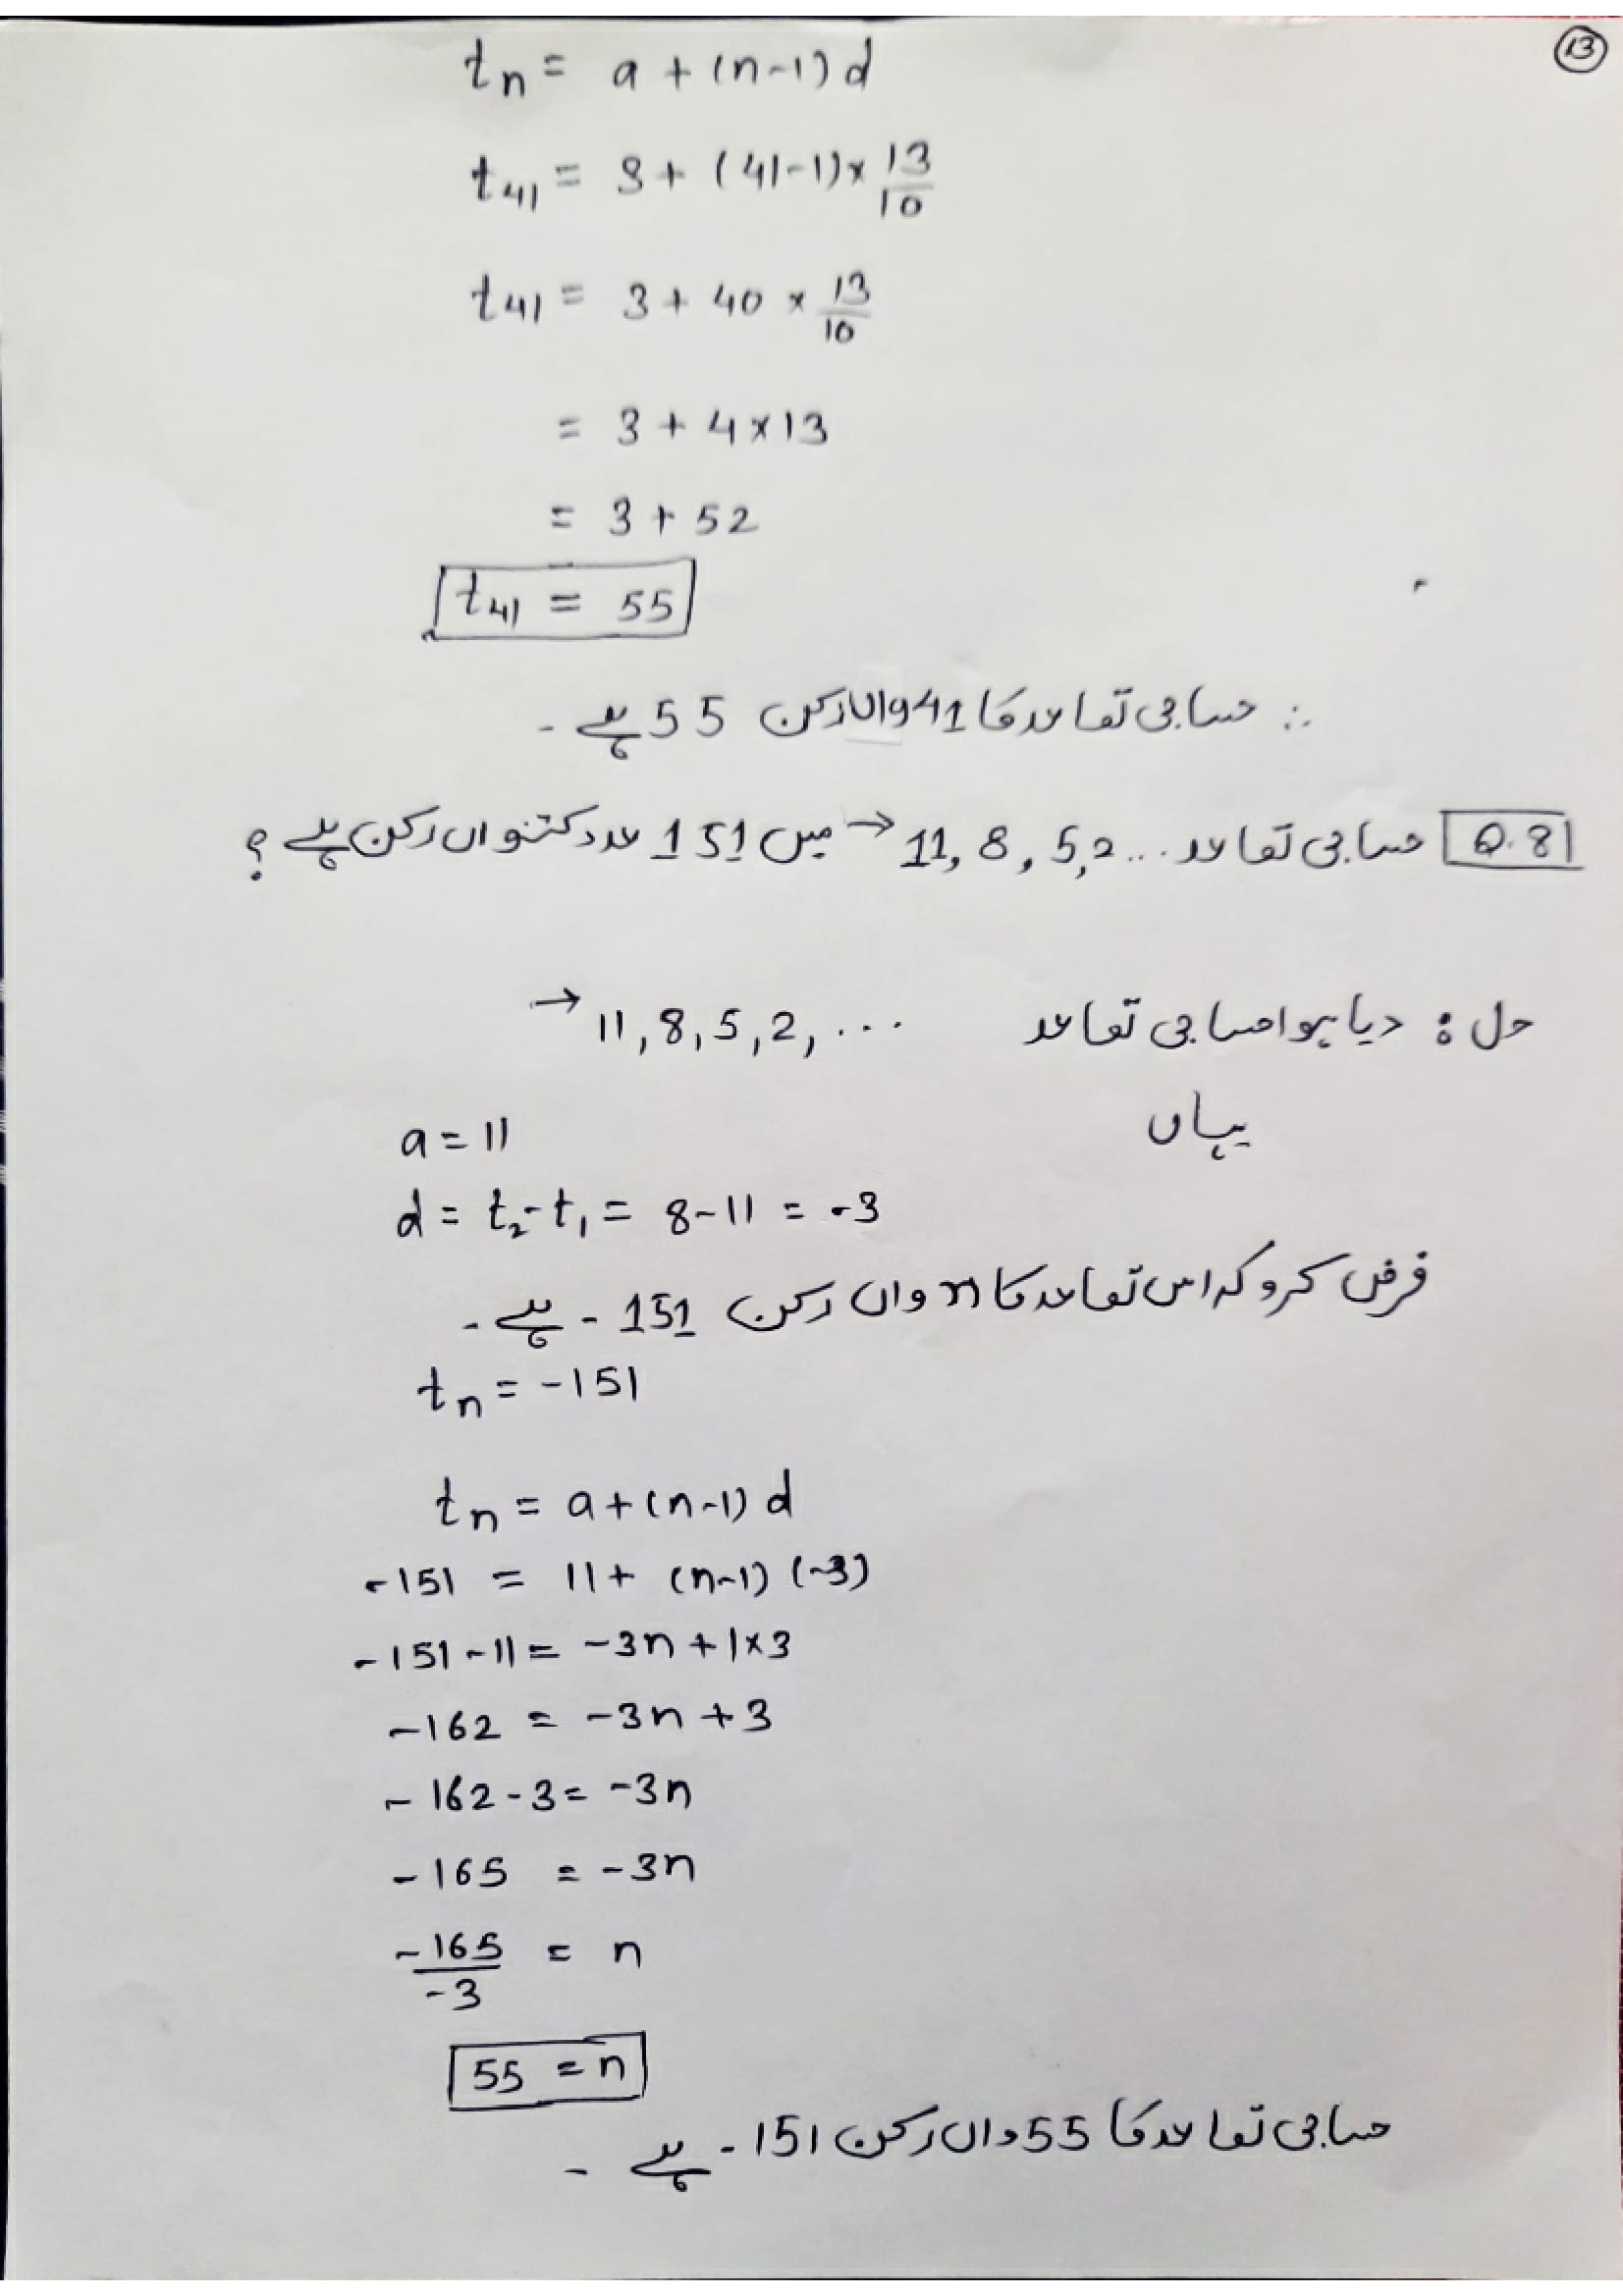 13
tn = a + (n-1) d
t41 = 3 + (41-1) x 13/10
t41 = 3 + 40 x 13/10
= 3 + 4 x 13
= 3 + 52
t41 = 55
∴ حسابی تصاعد کا 41 واں رکن 55 ہے -
Q.8 حسابی تصاعد ... 11, 8, 5, 2 → میں 151 عدد کتنواں رکن ہے ؟
حل : دیا ہوا حسابی تصاعد → 11, 8, 5, 2, ...
یہاں
a = 11
d = t2 - t1 = 8 - 11 = -3
فرض کرو کہ اس تصاعد کا n واں رکن 151 - ہے -
tn = -151
tn = a + (n-1) d
-151 = 11 + (n-1) (-3)
-151 - 11 = -3n + 1x3
-162 = -3n + 3
-162 - 3 = -3n
-165 = -3n
-165/-3 = n
55 = n
حسابی تصاعد کا 55 واں رکن 151 - ہے -